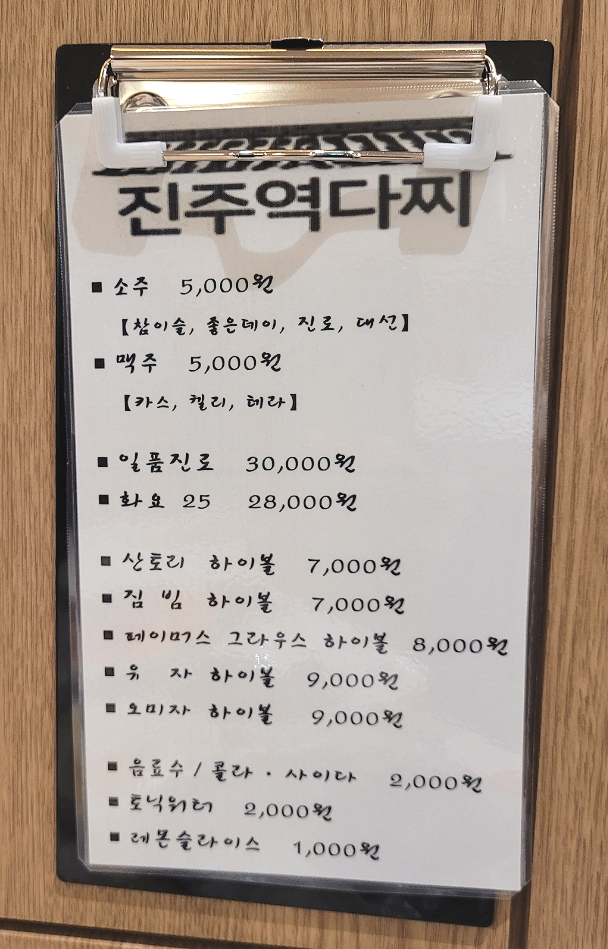 진주역다찌
■ 소주 5,000원
【참이슬, 좋은데이, 진로, 대선】
■ 맥주 5,000원
【카스, 켈리, 테라】
■ 일품진로 30,000원
■ 화요 25 28,000원
■ 산토리 하이볼 7,000원
■ 짐 빔 하이볼 7,000원
■ 페이머스 그라우스 하이볼 8,000원
■ 유 자 하이볼 9,000원
■ 오미자 하이볼 9,000원
■ 음료수 / 콜라 · 사이다 2,000원
■ 토닉워터 2,000원
■ 레몬슬라이스 1,000원